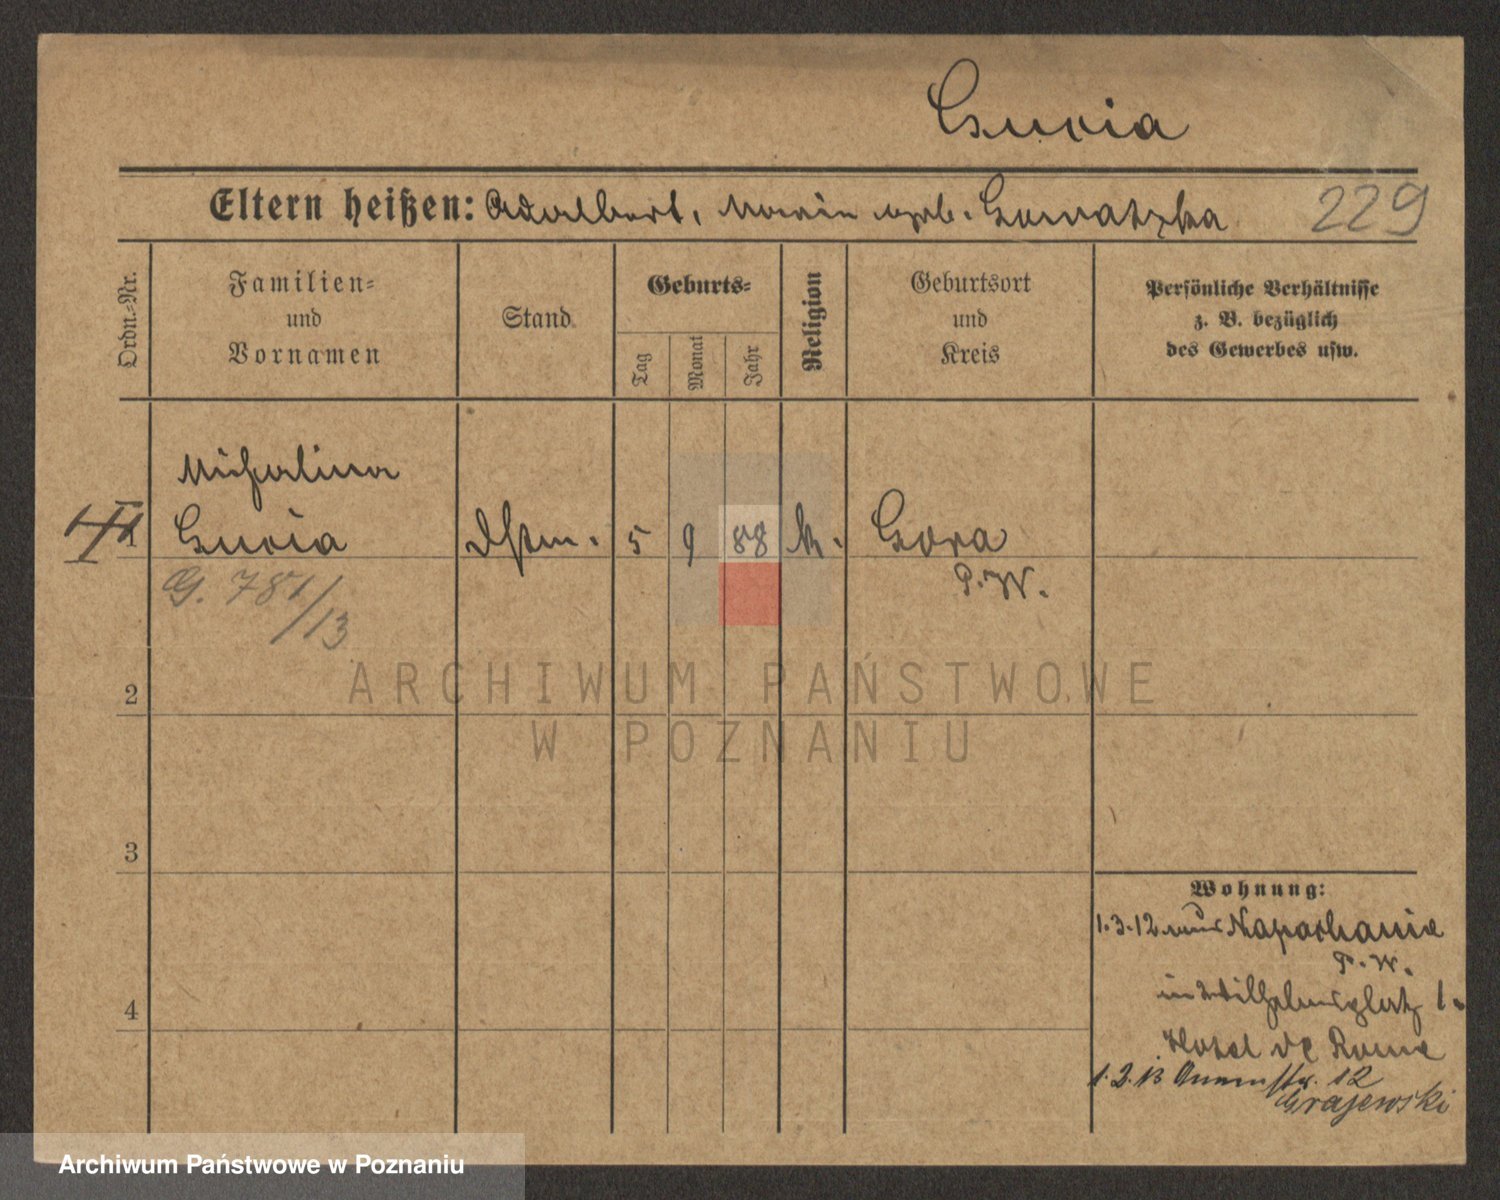 Gucia
Eltern heißen: Adalbert, Marie geb. Gowatzka 229
Ordn.-Nr.
Familien-
und
Vornamen
Stand
Geburts-
Tag
Monat
Jahr
Religion
Geburtsort
und
Kreis
Persönliche Verhältnisse
z. B. bezüglich
des Gewerbes usw.
Michalina
1 Gucia Dstm. 5 9 88 k. Gora
P.W.
G. 781/13
2
3
4
Wohnung:
1.3.12 aus Napachanie
P.W.
in Wilhelmsplatz 1.
Hotel de Rome
1.2.13 12
Grajewski
ARCHIWUM PAŃSTWOWE
W POZNANIU
Archiwum Państwowe w Poznaniu